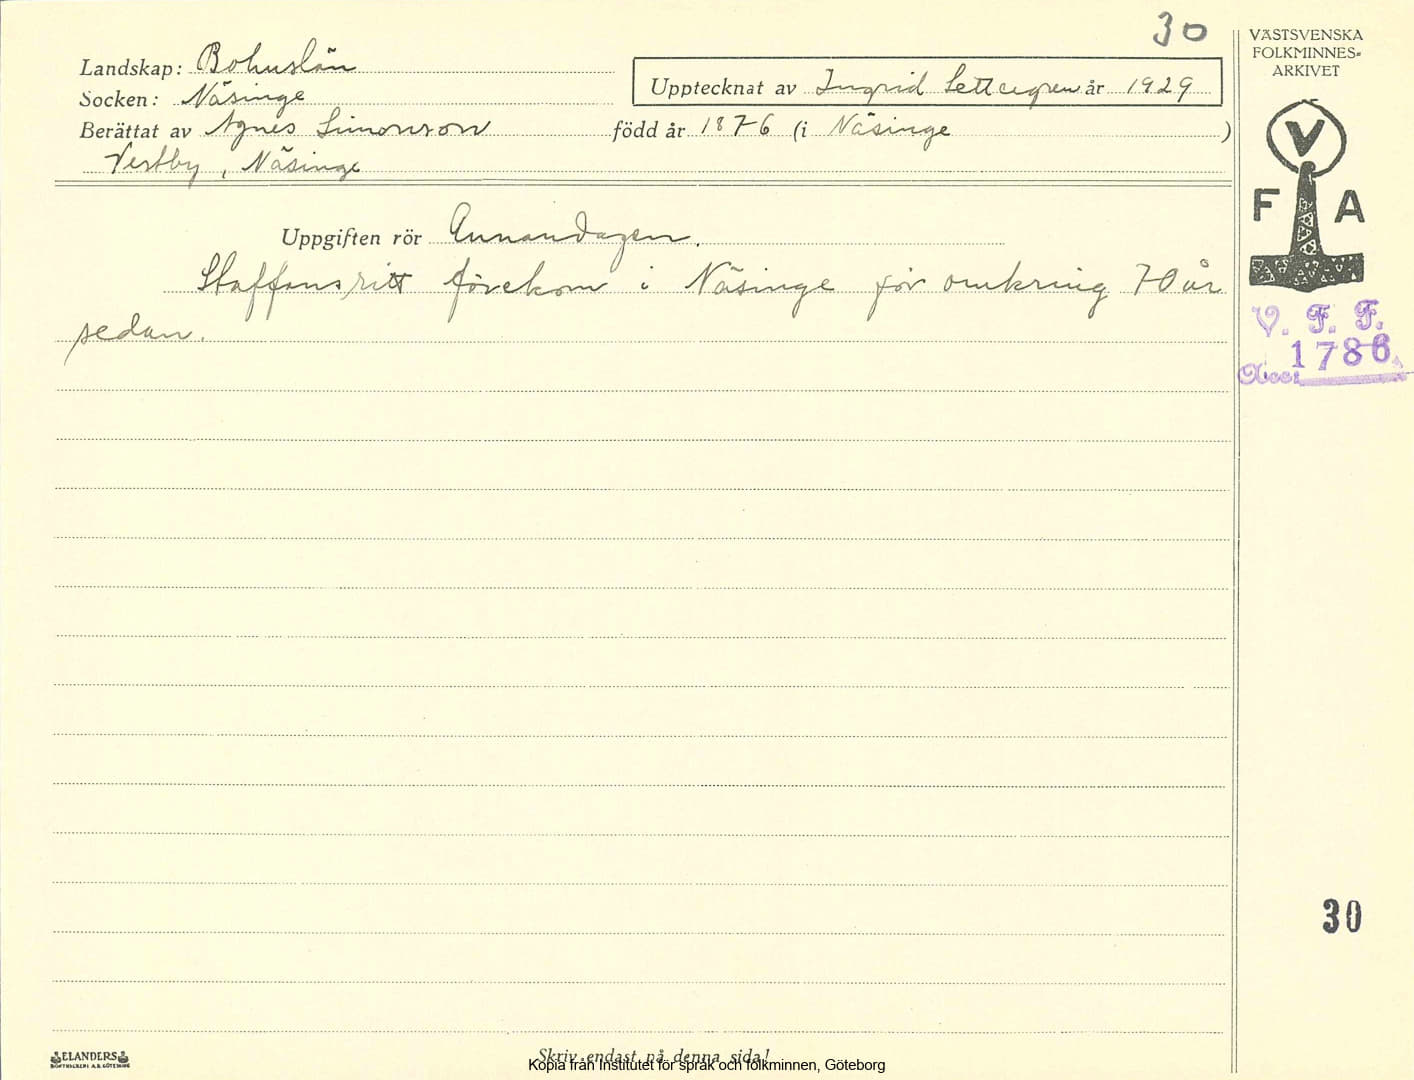 30
Landskap: Bohuslän
Socken: Näsinge
Upptecknat av Ingrid Settergren år 1929
Berättat av Agnes Simonson född år 1876 (i Näsinge )
Vestby, Näsinge
Uppgiften rör Annandagen.
Staffansritt förekom i Näsinge för omkring 70 år
sedan.
VÄSTSVENSKA
FOLKMINNES=
ARKIVET
V
F A
V. F. F.
1786
Acc:
30
ELANDERS
BOKTRYCKERI A.B. GÖTEBORG
Skriv endast på denna sida!
Kopia från Institutet för språk och folkminnen, Göteborg